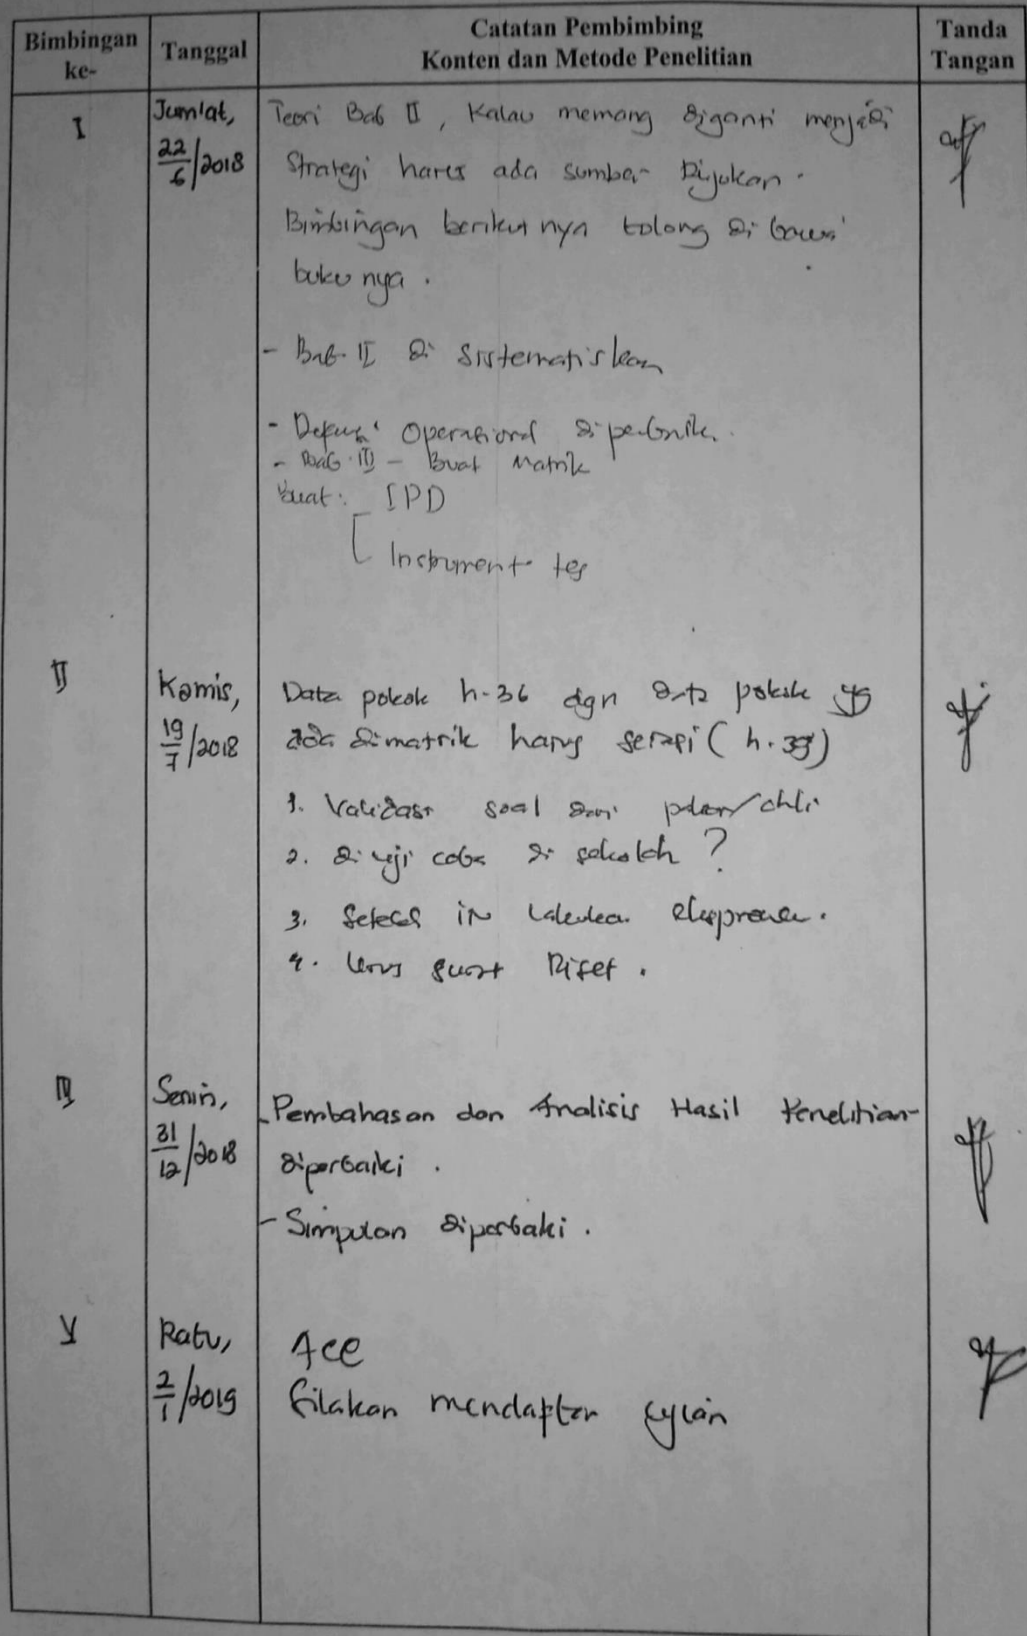 Bimbingan ke-
Tanggal
Catatan Pembimbing
Konten dan Metode Penelitian
Tanda Tangan
I
Jum'at,
22/6/2018
Teori Bab II, Kalau memang diganti menjadi
Strategi harus ada sumber Rujukan.
Bimbingan berikutnya tolong di bawa
bukunya.
- Bab II di Sistematiskan
- Operasional diperbaiki.
- Bab III - Buat Matrik
Buat: IPD
Instrument tes
II
Kamis,
19/7/2018
Data pokok h.36 dgn data pokok yg
ada dimatrik harus serasi (h.39)
1. Validasi soal dari pakar/ahli
2. di uji coba di sekolah ?
3. in lakukan
4. Urus surat Riset.
Senin,
31/12/2018
- Pembahasan dan Analisis Hasil Penelitian
diperbaiki.
- Simpulan diperbaki.
V
Rabu,
2/1/2019
Acc
Silakan mendaftar ujian